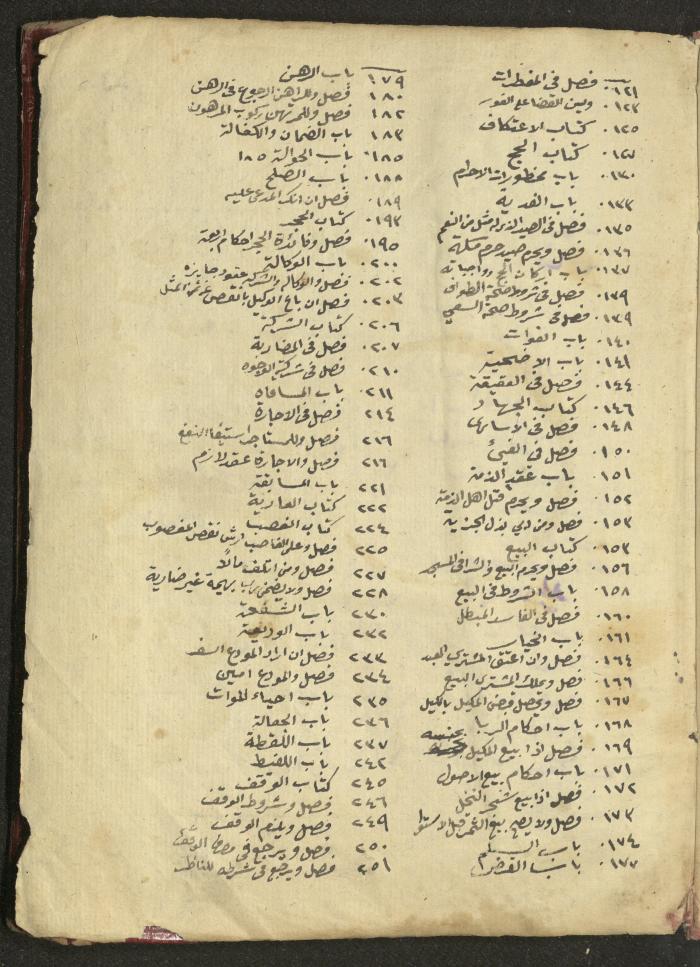 ١٢١ فصل في المفطرات
١٢٣ وسن القضا على الفور
١٢٥ كتاب الاعتكاف
١٢٧ كتاب الحج
١٣٠ باب محظورات الاحرام
١٣٣ باب الفدية
١٣٥ فصل في الصيد الذي له مثل من النعم
١٣٦ فصل ويحرم صيد حرم مكة
١٣٧ باب اركان الحج وواجباته
١٣٩ فصل في شروط صحة الطواف
١٣٩ فصل في شروط صحة السعي
١٤٠ باب الفوات
١٤١ باب الاضحية
١٤٤ فصل في العقيقة
١٤٦ كتاب الجهاد
١٤٨ فصل في الاسارى
١٥٠ فصل في الفيئ
١٥١ باب عقد الذمة
١٥٢ فصل ويحرم قتل اهل الذمة
١٥٣ فصل ومن ابي بذل الجزية
١٥٣ كتاب البيع
١٥٦ فصل ويحرم البيع والشرا في المسجد
١٥٨ باب الشروط في البيع
١٦٠ فصل في الفاسد المبطل
١٦١ باب الخيار
١٦٤ فصل وان اعتق المشتري العبد
١٦٦ فصل ويملك المشتري المبيع
١٦٧ فصل ويحصل قبض المكيل بالكيل
١٦٨ باب احكام الربا
١٦٩ فصل اذا بيع المكيل بجنسه
١٧١ باب احكام بيع الاصول
١٧٢ فصل اذا بيع شجر النخل
١٧٣ فصل ولا يصح بيع الثمر قبل
١٧٤ باب السلم
١٧٧ باب القرض
١٧٩ باب الرهن
١٨٠ فصل وللراهن الرجوع في الرهن
١٨٢ فصل وللمرتهن ركوب المرهون
١٨٣ باب الضمان والكفالة
١٨٥ باب الحوالة ١٨٥
١٨٨ باب الصلح
١٨٩ فصل ان انكر المدعى عليه
١٩٣ كتاب الحجر
١٩٥ فصل وفائدة الحجر احكام اربعة
٢٠٠ باب الوكالة
٢٠٢ فصل والوكالة والشركة عقود جايزة
٢٠٣ فصل ان باع الوكيل بانقص عن ثمن المثل
٢٠٦ كتاب الشركة
٢٠٧ فصل في المضاربة
٢١٠ فصل في شركة الوجوه
٢١١ باب المساقاه
٢١٤ فصل في الاجارة
٢١٦ فصل وللمستاجر استيفا النفع
٢١٦ فصل والاجارة عقد لازم
٢٢١ باب المسابقة
٢٢٢ كتاب العارية
٢٢٤ كتاب الغصب
٢٢٥ فصل وعلى الغاصب ارش نقص المغصوب
٢٢٧ فصل ومن اتلف مالا
٢٢٨ فصل ولا يضمن رب بهيمة غير ضارية
٢٣٠ باب الشفعة
٢٣٢ باب الوديعة
٢٣٣ فصل ان اراد المودع السفر
٢٣٤ فصل والمودع امين
٢٣٥ باب احياء الموات
٢٣٦ باب الجعالة
٢٣٧ باب اللقطة
٢٤٢ باب اللقيط
٢٤٥ كتاب الوقف
٢٤٦ فصل وشروط الوقف
٢٤٩ فصل ويلزم الوقف
٢٥٠ فصل ويرجع في مصرف الوقف
٢٥١ فصل ويرجع في شرطه للناظر